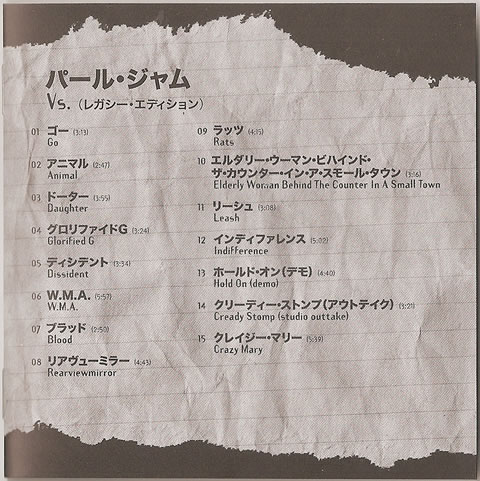 パール・ジャム
Vs. (レガシー・エディション)
01 ゴー (3:13)
Go
02 アニマル (2:47)
Animal
03 ドーター (3:55)
Daughter
04 グロリファイドG (3:24)
Glorified G
05 ディシデント (3:34)
Dissident
06 W.M.A. (5:57)
W.M.A.
07 ブラッド (2:50)
Blood
08 リアヴューミラー (4:43)
Rearviewmirror
09 ラッツ (4:15)
Rats
10 エルダリー・ウーマン・ビハインド・
ザ・カウンター・イン・ア・スモール・タウン (3:16)
Elderly Woman Behind The Counter In A Small Town
11 リーシュ (3:08)
Leash
12 インディファレンス (5:02)
Indifference
13 ホールド・オン(デモ) (4:40)
Hold On (demo)
14 クリーディー・ストンプ(アウトテイク) (3:21)
Cready Stomp (studio outtake)
15 クレイジー・マリー (5:39)
Crazy Mary